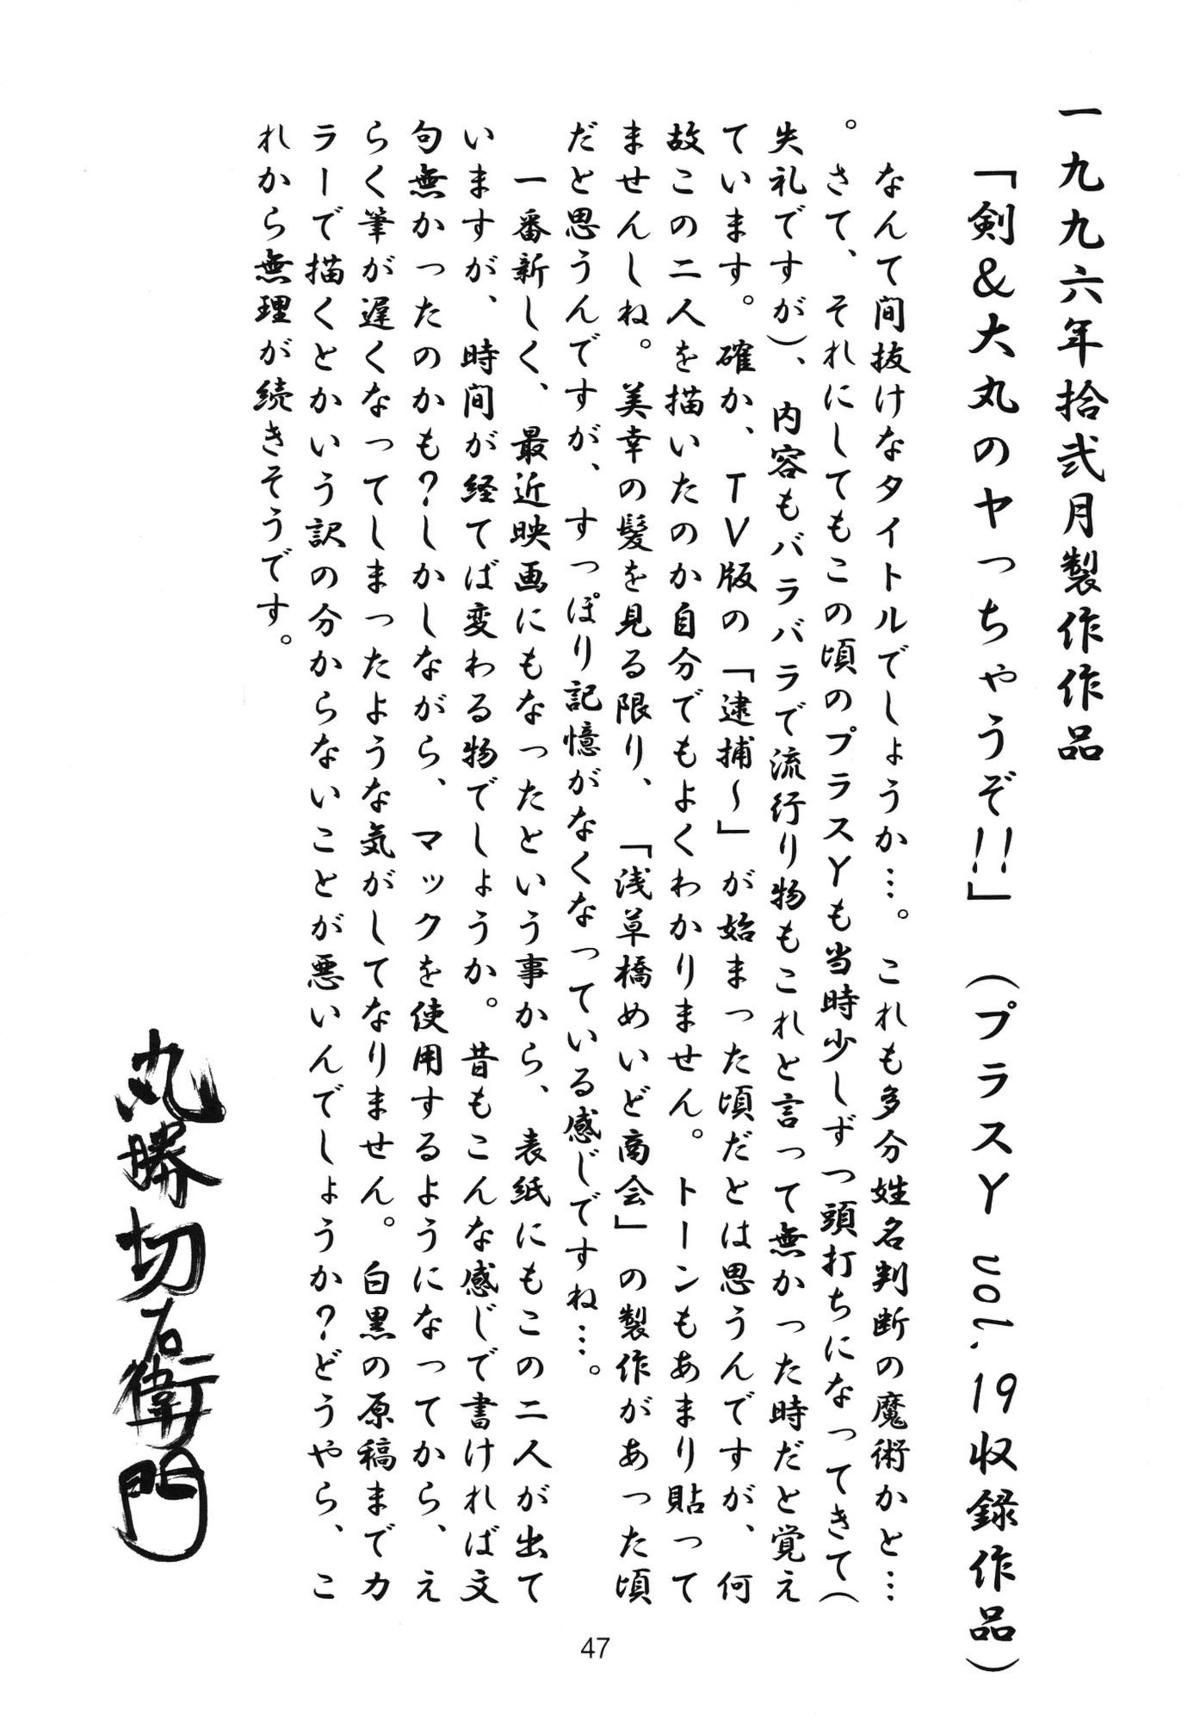 一九九六年拾弐月製作作品
「剣＆大丸のヤっちゃうぞ!!」（プラスY vol.19収録作品）
なんて間抜けなタイトルでしょうか…。これも多分姓名判断の魔術かと…
。さて、それにしてもこの頃のプラスYも当時少しずつ頭打ちになってきて（
失礼ですが）、内容もバラバラで流行り物もこれと言って無かった時だと覚え
ています。確か、TV版の「逮捕～」が始まった頃だとは思うんですが、何
故この二人を描いたのか自分でもよくわかりません。トーンもあまり貼って
ませんしね。美幸の髪を見る限り、「浅草橋めいど商会」の製作があった頃
だと思うんですが、すっぽり記憶がなくなっている感じですね…。
一番新しく、最近映画にもなったという事から、表紙にもこの二人が出て
いますが、時間が経てば変わる物でしょうか。昔もこんな感じで書ければ文
句無かったのかも？しかしながら、マックを使用するようになってから、え
らく筆が遅くなってしまったような気がしてなりません。白黒の原稿までカ
ラーで描くとかいう訳の分からないことが悪いんでしょうか？どうやら、こ
れから無理が続きそうです。
丸勝切右衛門
47